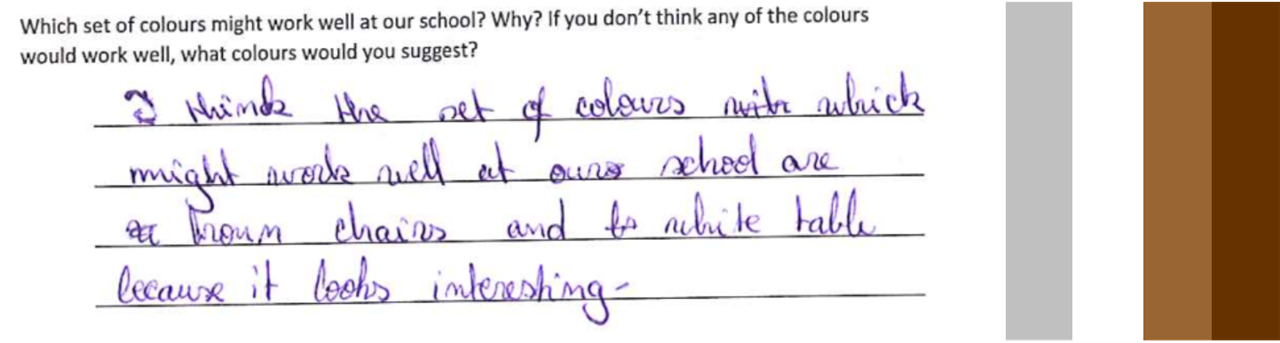 Which set of colours might work well at our school? Why? If you don't think any of the colours
would work well, what colours would you suggest?
I think the set of colours which
might work well at our school are
broun chairs and white table
because it looks interesting-